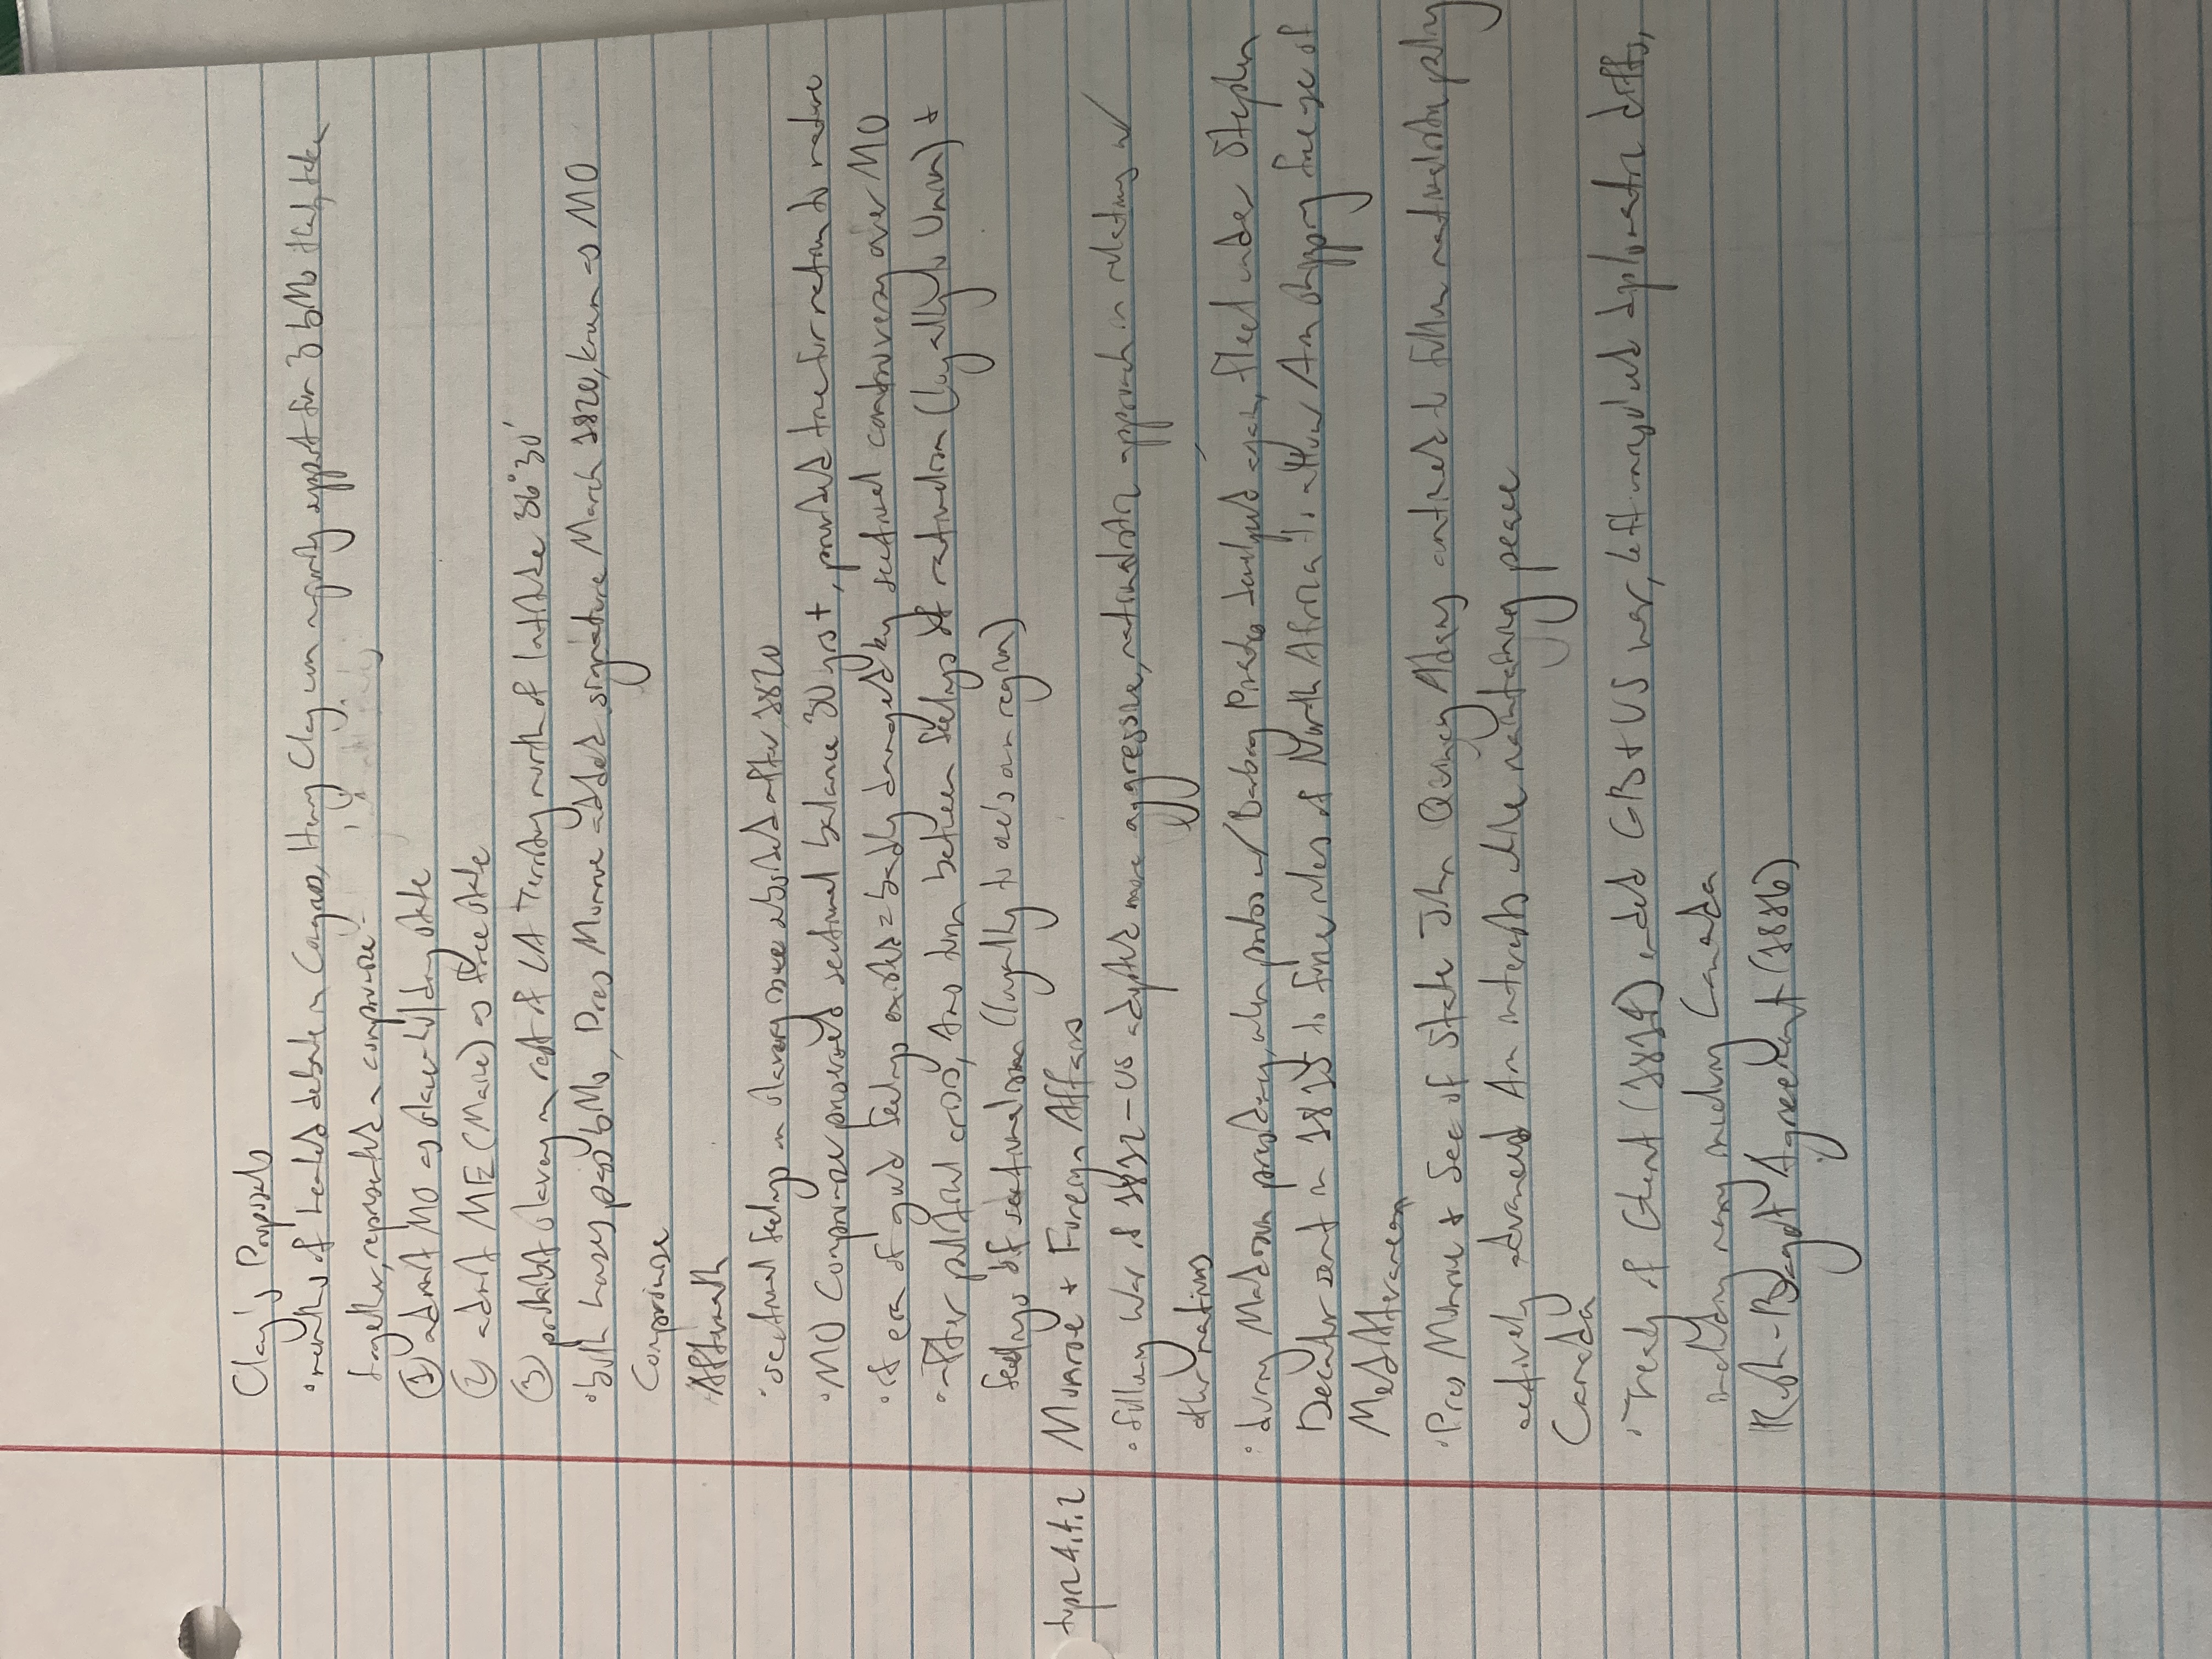 Clay's Proposals
• months of heated debate in Congress, Henry Clay won majority support for 3 bills that, taken
together, represented a compromise
① admit MO as slave-holding state
② admit ME (Maine) as free state
③ prohibit slavery in rest of LA Territory north of latitude 36°30'
• both houses pass bills, Pres Monroe added signature March 1820, known as MO
Compromise
Aftermath
• sectional feelings on slavery issue subsided after 1820
• MO Compromise preserved sectional balance 30 yrs+, provided time for nation to mature
• if era of good feelings existed = badly damaged by sectional controversy over MO
• after political crisis, Ams torn between feelings of nationalism (loyalty to Union) +
feelings of sectionalism (loyalty to one's own region)
topic 4.4.2 Monroe + Foreign Affairs
• following War of 1812 - US adopted more aggressive, nationalistic approach in relations w/
other nations
• during Madison presidency, when probs w/ Barbary Pirates developed again, fleet under Stephen
Decatur sent in 1815 to force rulers of North Africa to allow Am shipping free use of
Mediterranean
• Pres Monroe + Sec of State John Quincy Adams continued to follow nationalistic policy
actively advanced Am interests while maintaining peace
Canada
• Treaty of Ghent (1814) ended GB + US war, left unresolved diplomatic diffs,
including many involving Canada
Rush-Bagot Agreement (1886)